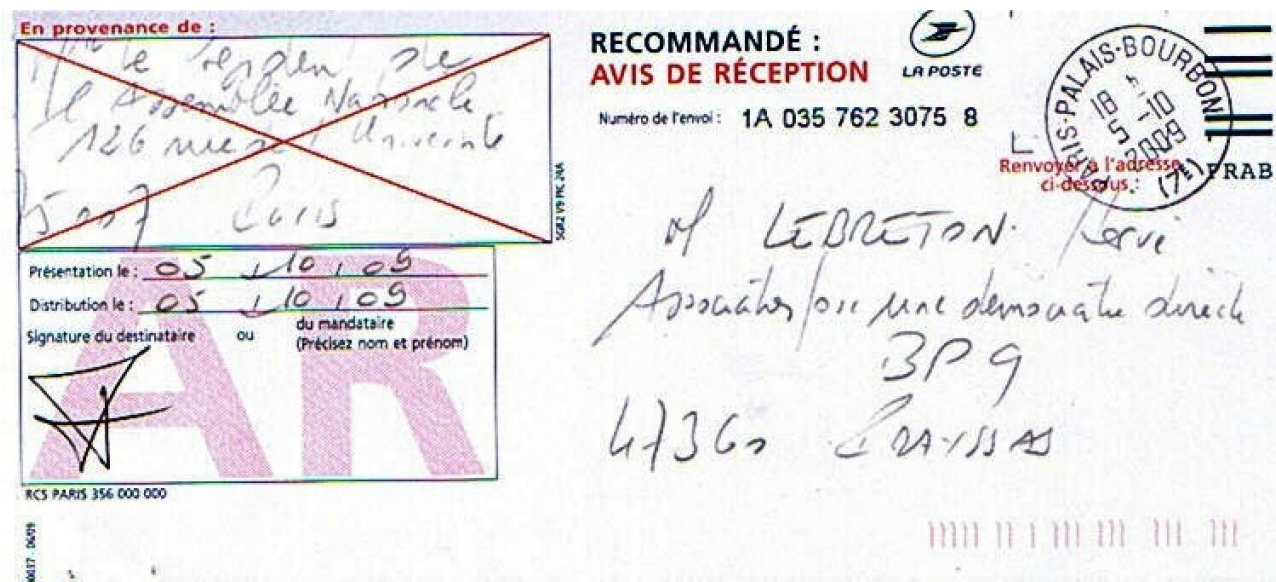 En provenance de :
Mr le Président de
l'Assemblée Nationale
126 rue de l'Université
75007 Paris
SGR2 V9 PIC 20A
Présentation le : 05 10 09
Distribution le : 05 10 09
Signature du destinataire ou du mandataire
(Précisez nom et prénom)
AR
RCS PARIS 356 000 000
RECOMMANDÉ :
AVIS DE RÉCEPTION
LA POSTE
Numéro de l'envoi : 1A 035 762 3075 8
PARIS-PALAIS-BOURBON (7E)
18
5-10
2009
Renvoyer à l'adresse
ci-dessous :
FRAB
M LEBRETON Hervé
Association pour une démocratie directe
BP 9
47360 PRAYSSAS